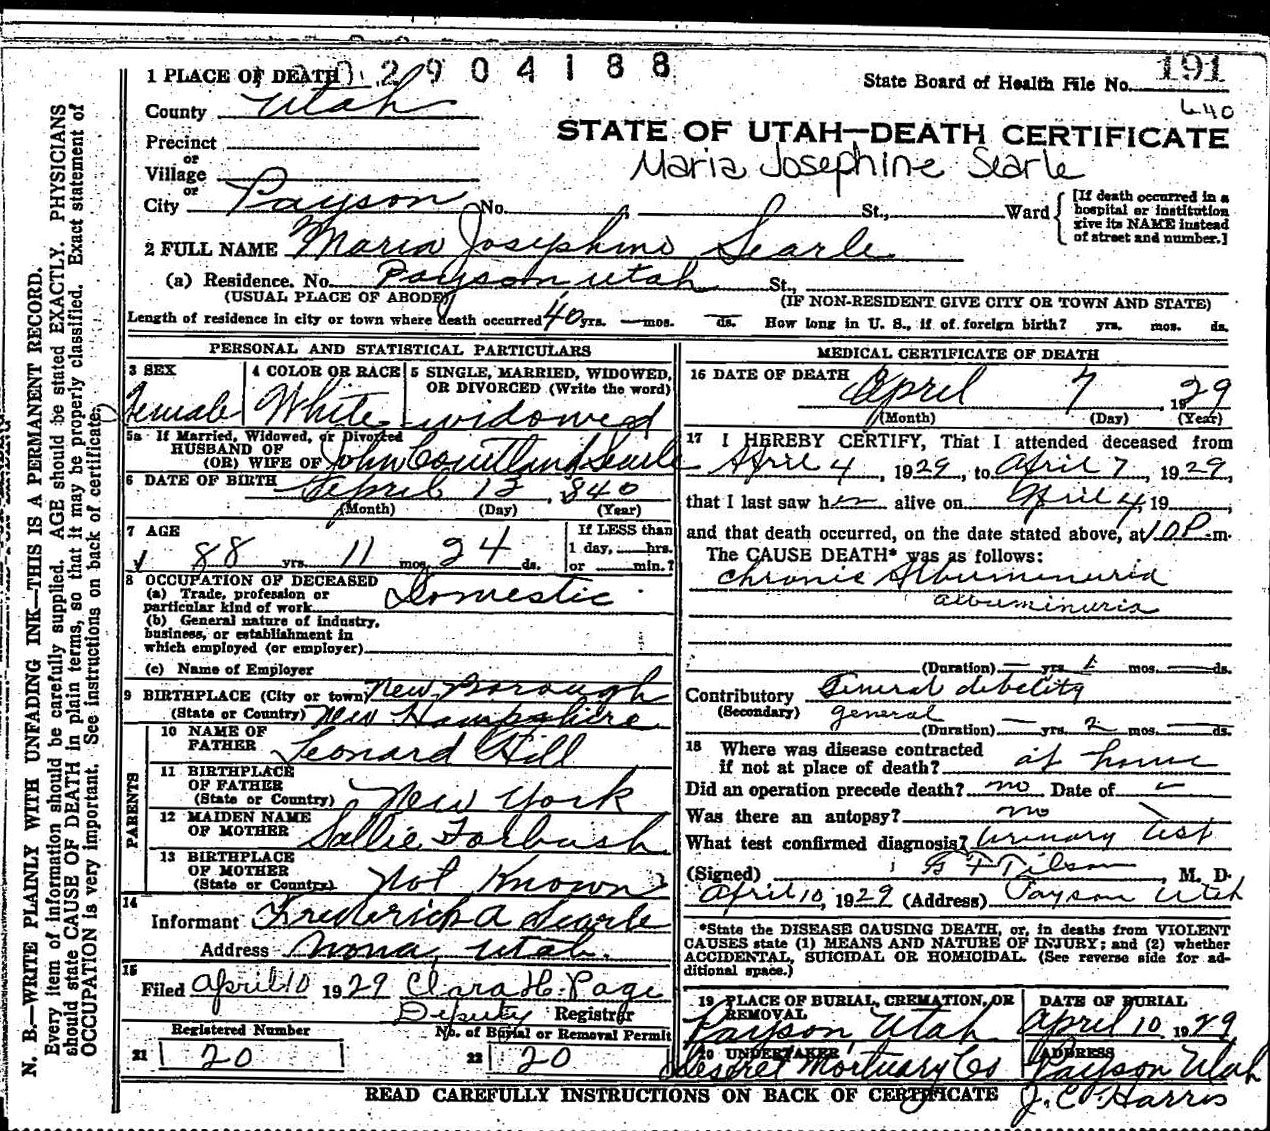 1 PLACE OF DEATH 2904188
State Board of Health File No. 191
County Utah
640
STATE OF UTAH—DEATH CERTIFICATE
Precinct
or
Maria Josephine Searle
Village
or
City Payson No. St., Ward
[If death occurred in a hospital or institution give its NAME instead of street and number.]
2 FULL NAME Maria Josephine Searle
(a) Residence. No. Payson Utah St.,
(USUAL PLACE OF ABODE) (IF NON-RESIDENT GIVE CITY OR TOWN AND STATE)
Length of residence in city or town where death occurred 40 yrs. — mos. — ds. How long in U. S., if of foreign birth? yrs. mos. ds.
PERSONAL AND STATISTICAL PARTICULARS
3 SEX Female
4 COLOR OR RACE White
5 SINGLE, MARRIED, WIDOWED, OR DIVORCED (Write the word) widowed
5a If Married, Widowed, or Divorced
HUSBAND OF
(OR) WIFE OF John Courtland Searle
6 DATE OF BIRTH April 13, 1840
(Month) (Day) (Year)
7 AGE
88 yrs. 11 mos. 24 ds.
If LESS than
1 day, hrs.
or min.?
8 OCCUPATION OF DECEASED
(a) Trade, profession or
particular kind of work Domestic
(b) General nature of industry,
business, or establishment in
which employed (or employer)
(c) Name of Employer
9 BIRTHPLACE (City or town) New Borough
(State or Country) New Hampshire
PARENTS
10 NAME OF
FATHER Leonard Hill
11 BIRTHPLACE
OF FATHER
(State or Country) New York
12 MAIDEN NAME
OF MOTHER Sallie Forbush
13 BIRTHPLACE
OF MOTHER
(State or Country) Not Known
14
Informant Frederick A Searle
Address Nona, Utah.
15
Filed April 10 1929 Clara H. Page
Deputy Registrar
Registered Number No. of Burial or Removal Permit
21 20 22 20
MEDICAL CERTIFICATE OF DEATH
16 DATE OF DEATH
April 7, 1929
(Month) (Day) (Year)
17 I HEREBY CERTIFY, That I attended deceased from
April 4, 1929, to April 7, 1929,
that I last saw her alive on April 4, 19
and that death occurred, on the date stated above, at 10 P. m.
The CAUSE DEATH* was as follows:
Chronic Albumenuria
albuminuria
(Duration) — yrs. mos. — ds.
Contributory General debelity
(Secondary) general
(Duration) — yrs. 2 mos. — ds.
18 Where was disease contracted
if not at place of death? at home
Did an operation precede death? no Date of —
Was there an autopsy? no
What test confirmed diagnosis? Urinary Test
(Signed) Tilson, M. D.
April 10, 1929 (Address) Payson Utah
*State the DISEASE CAUSING DEATH, or, in deaths from VIOLENT
CAUSES state (1) MEANS AND NATURE OF INJURY; and (2) whether
ACCIDENTAL, SUICIDAL OR HOMICIDAL. (See reverse side for ad-
ditional space.)
19 PLACE OF BURIAL, CREMATION, OR
REMOVAL
Payson, Utah
DATE OF BURIAL
April 10, 1929
20 UNDERTAKER
Deseret Mortuary Co
ADDRESS
Payson Utah
J. C. Harris
READ CAREFULLY INSTRUCTIONS ON BACK OF CERTIFICATE
N. B.—WRITE PLAINLY WITH UNFADING INK—THIS IS A PERMANENT RECORD.
Every item of information should be carefully supplied. AGE should be stated EXACTLY. PHYSICIANS
should state CAUSE OF DEATH in plain terms, so that it may be properly classified. Exact statement of
OCCUPATION is very important. See instructions on back of certificate.